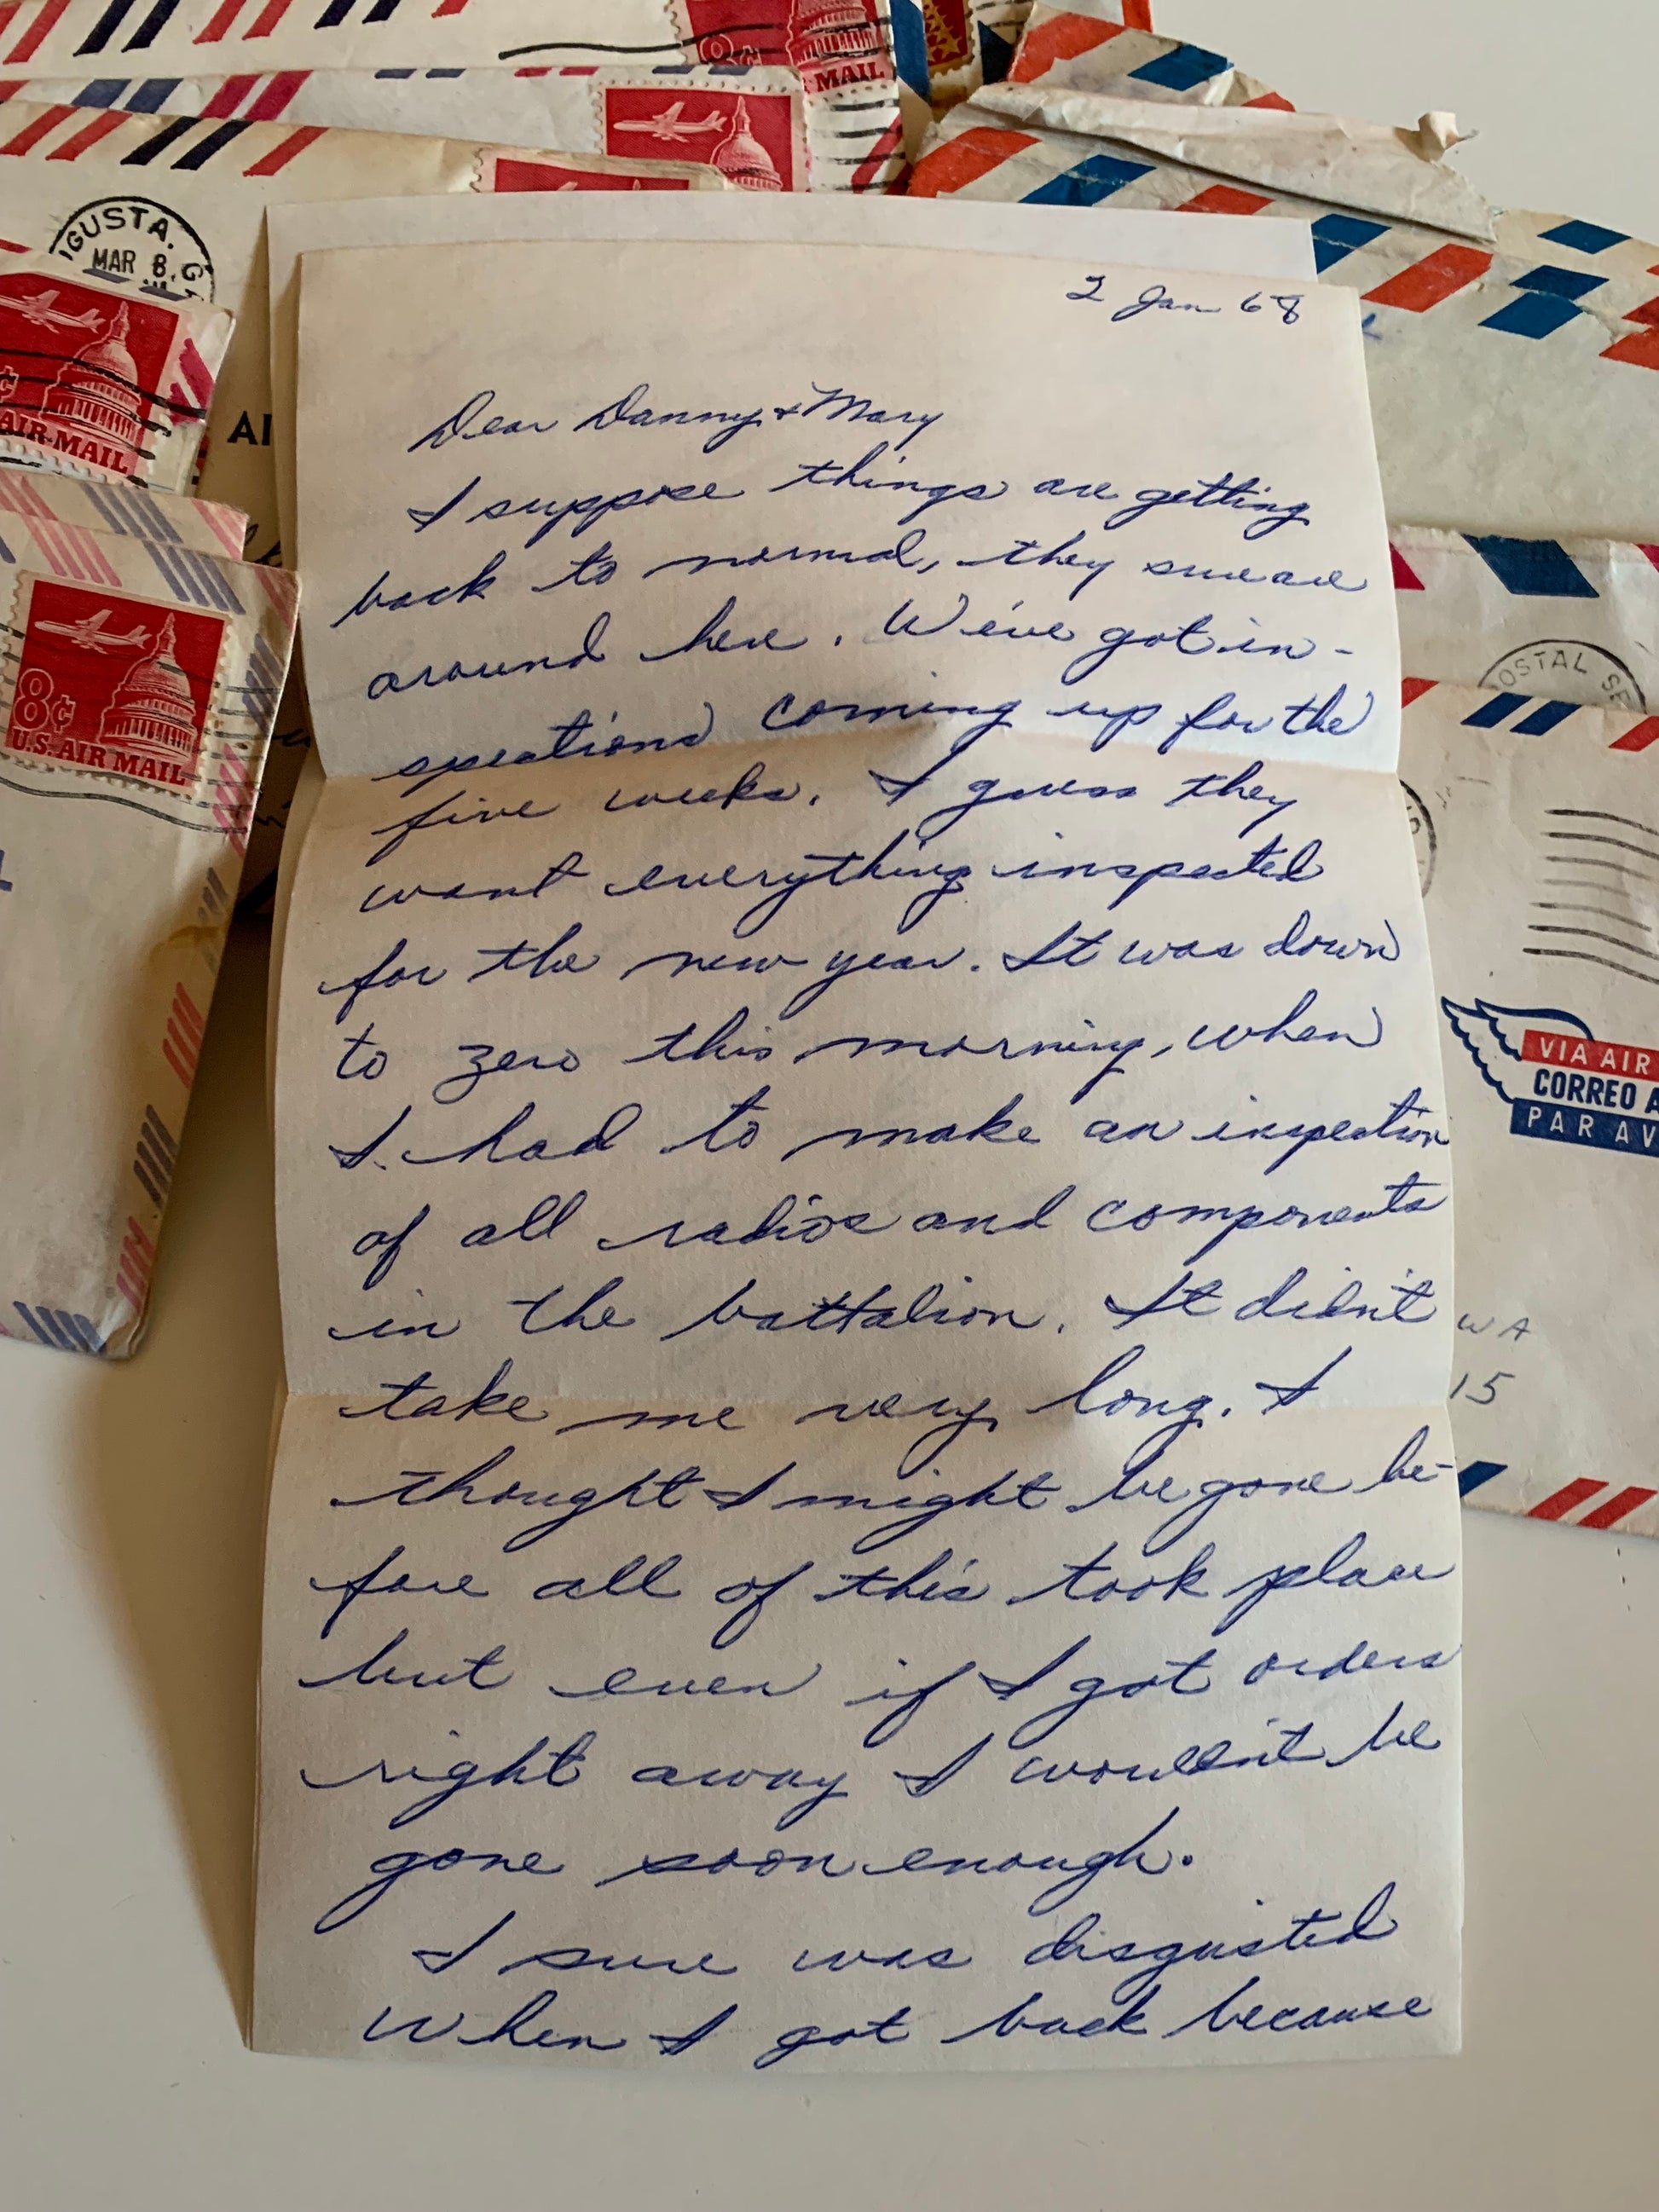 8¢
MAIL
IGUSTA. G
MAR 8
¢
AIR-MAIL
AI
8¢
U.S. AIR MAIL
OSTAL SE
VIA AIR
CORREO A
PAR AV
WA
15
2 Jan 68
Dear Danny & Mary
I suppose things are getting
back to normal, they sure are
around here. We've got in-
spections coming up for the
five weeks. I guess they
want everything inspected
for the new year. It was down
to zero this morning, when
I had to make an inspection
of all radios and components
in the battalion. It didn't
take me very long. I
thought I might be gone be-
fore all of this took place
but even if I got orders
right away I wouldn't be
gone soon enough.
I sure was disgusted
when I got back because